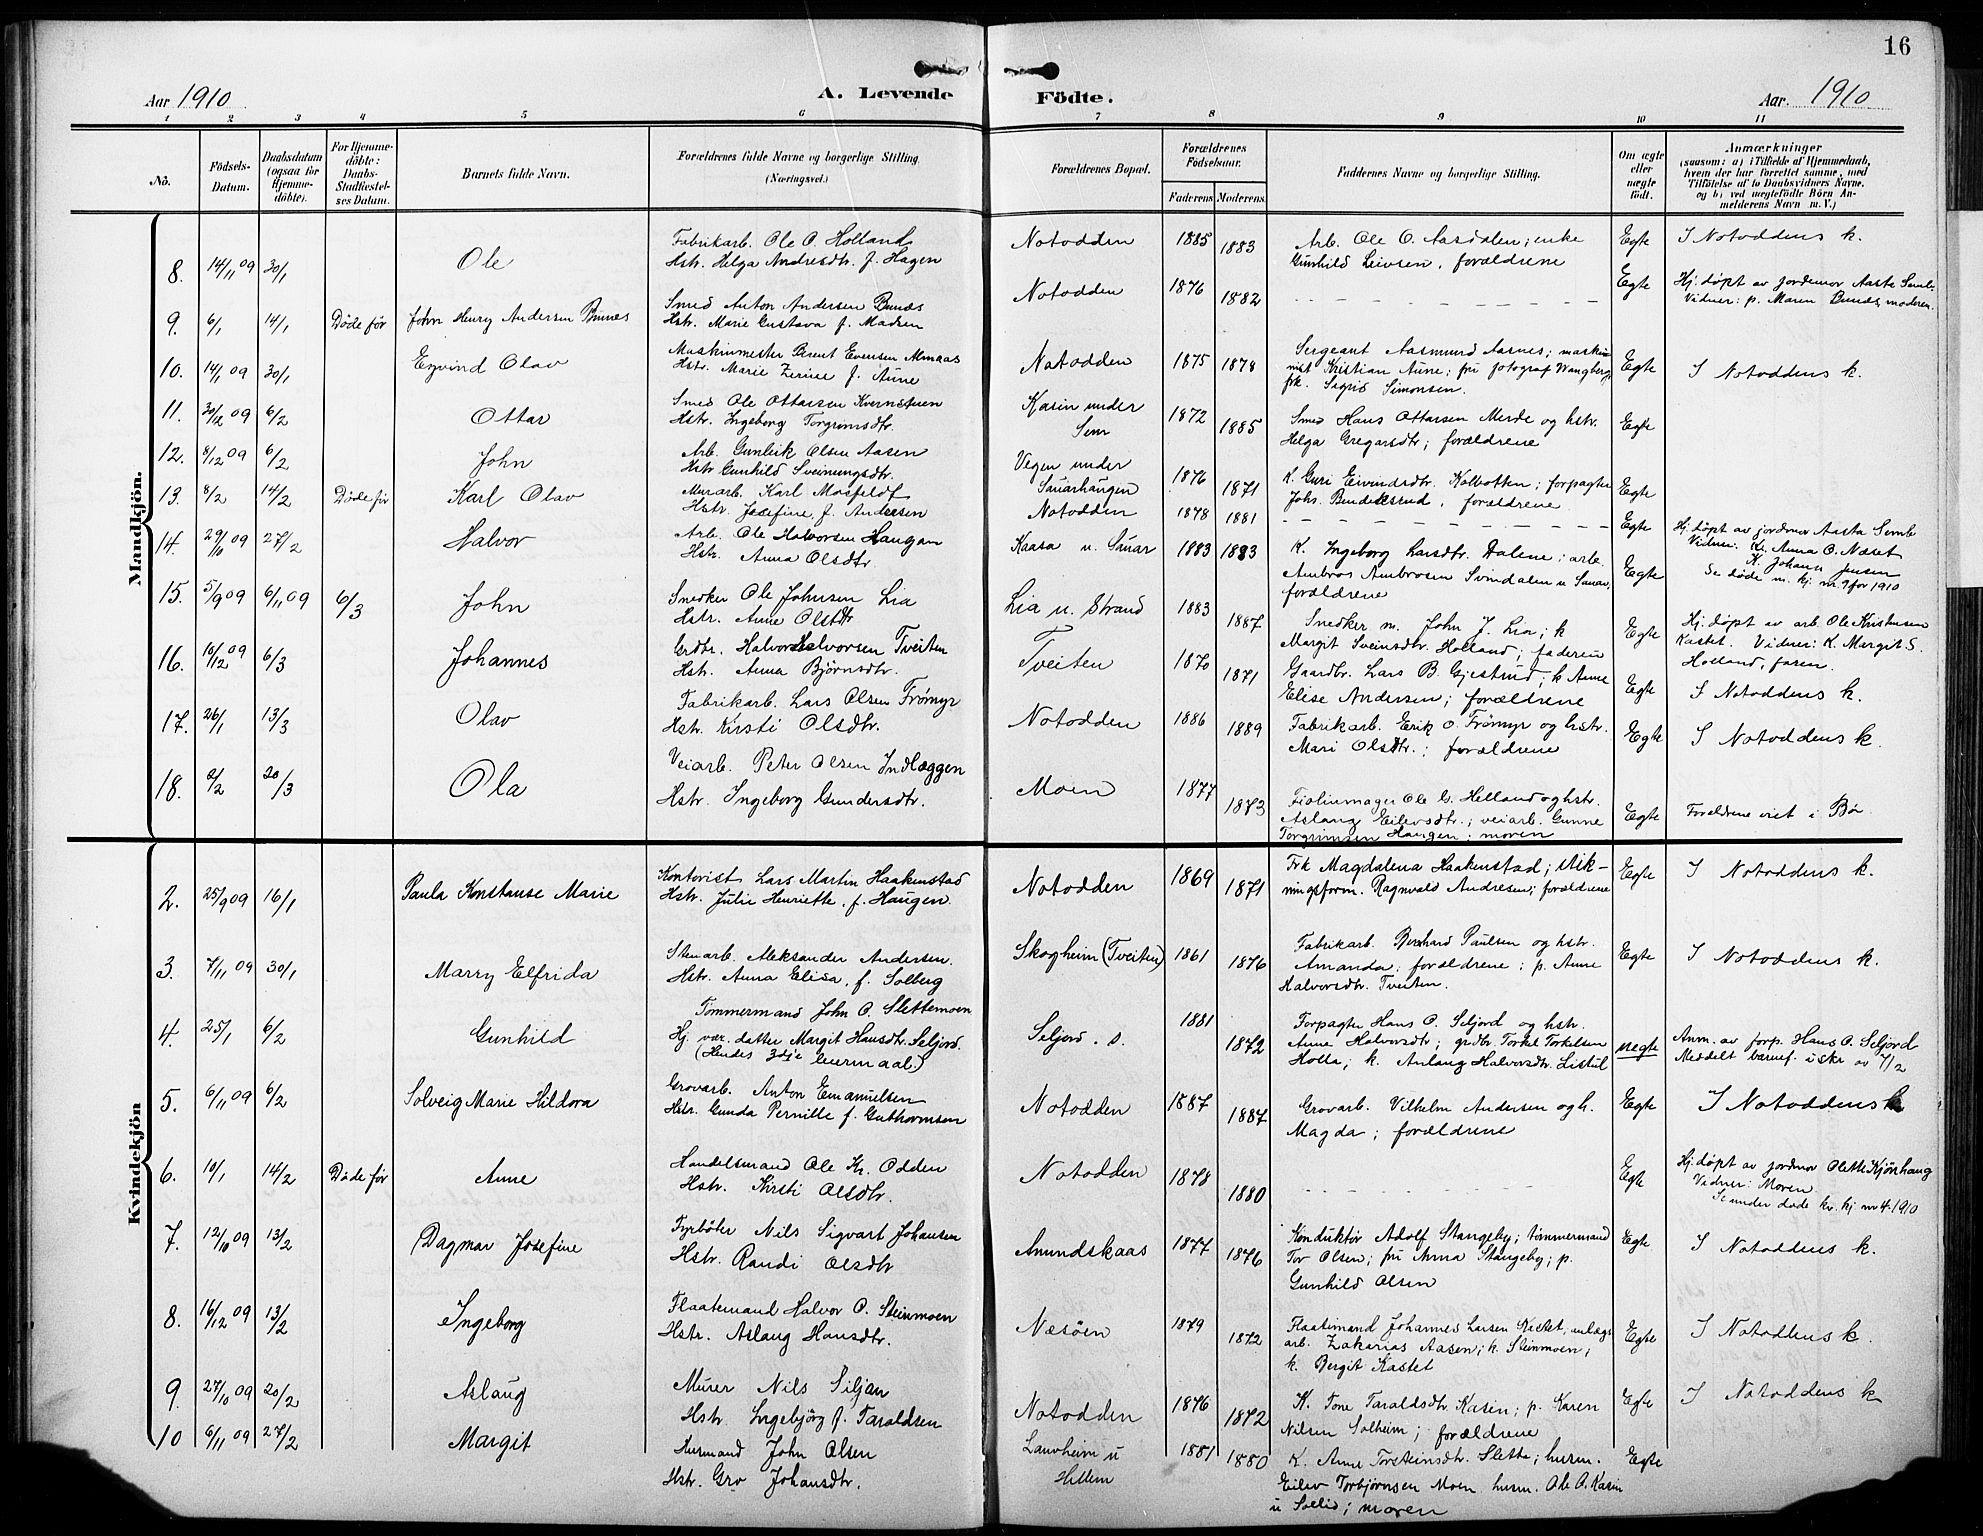 16
Aar 1910
A. Levende
Födte.
Aar. 1910
1 2 3 4 5 6 7 8 9 10 11
No.
Födsels-
Datum.
Daabsdatum
(ogsaa for
Hjemme-
döbte).
For Hjemme-
döbte:
Daabs-
Stadfæstel-
ses Datum.
Barnets fulde Navn.
Forældrenes fulde Navne og borgerlige Stilling.
(Næringsvei.)
Forældrenes Bopæl.
Forældrenes
Födselsaar.
Faderens
Moderens
Faddernes Navne og borgerlige Stilling.
Om ægte
eller
uægte
födt.
Anmærkninger
(saasom: a) i Tilfælde af Hjemmedaab,
hvem der har forrettet samme, med
Tilföielse af to Daabsvidners Navne,
og b) ved uægtefödte Börn An-
melderens Navn m. V.)
Mandkjön.
8. 14/11 09 30/1 Ole
Fabrikarb. Ole O. Holland
Hstr. Helga Andresdtr. f. Hagen
Notodden 1885 1883
Arb. Ole O. Aasdalen; enke
Gunhild Leivsen, forældrene
Egte I Notoddens k.
9. 6/1 14/1 Døde før John Henry Andersen Bunæs
Smed Anton Andersen Bunæs
Hstr. Marie Gustava f. Madsen
Notodden 1876 1882
Egte Hj. døpt av jordmor Aasta Semb.
Vidner: p. Maren Bunæs, moderen.
10. 14/1 09 30/1 Eyvind Olav
Maskinmester Bernt Evensen Almaas
Hstr. Marie f. Aune
Notodden 1875 1878
Sergeant Aasmund Aasnes; maskin
nist Kristian Aune; fru fotograf Wangberg,
frk. Sigrid Simonsen.
Egte I Notoddens k.
11. 30/12 09 6/2 Ottar
Smed Ole Ottarsen Kvernstuen
Hstr. Ingeborg Torgrimsdtr.
Kasin under
Sem
1872 1885
Smed Hans Ottarsen Merde og hstr.
Helga Gregarsdtr; forældrene
Egte
12. 8/12 09 6/2 John
Arb. Gunleik Olsen Aasen
Hstr Gunhild Sveinungsdtr.
Vegen under
Sauarhaugen
1876 1871
K. Guri Eivindsdtr. Kolbotten; forpagter
Johs. Bendiksrud, forældrene
Egte
13. 8/2 14/2 Døde før Karl Olav
Murarb. Karl Mosfeldt
Hstr. Josefine f. Andersen
Notodden 1878 1881
Egte Hj. døpt av jordmor Aasta Semb
Vidner: Kr. Anna O. Næset
K. Johanne Jensen
Se døde m. kj. nr. 9 for 1910
14. 29/10 09 27/2 Halvor
Arb. Ole Halvorsen Haugan
Hstr. Anna Olsdtr.
Kaasa u. Sauar 1883 1883
K. Ingeborg Larsdtr. Dalene; arb.
Ambros Ambrosen Svindalen u Sauar,
forældrene
Egte
15. 5/9 09 6/11 09 6/3 John
Snedker Ole Johnsen Lia
Hstr. Anne Olsdtr
Lia u. Strand 1883 1887
Snedker m. John J. Lia; k
Margit Sveinsdtr. Holland; faderen
Egte Hj. døpt av arb. Ole Kristensen
Kastet. Vidner: K. Margit S.
Holland, faren.
16. 10/12 09 6/3 Johannes
Grdbr. Halvor Halvorsen Tveiten
Hstr. Anna Bjørnsdtr.
Tveiten 1870 1871
Gaardbr. Lars B. Gjestrud; k Anne
Elise Andersen; forældrene
Egte I Notoddens k.
17. 26/1 13/3 Olav
Fabrikarb. Lars Olsen Frømyr
Hstr. Kirsti Olsdtr.
Notodden 1886 1889
Fabrikarb. Erik O. Frømyr og hstr.
Mari Olsdtr.; forældrene
Egte I Notoddens k.
18. 2/2 20/3 Ola
Veiarb. Peter Olsen Indlæggen
Hstr. Ingeborg Gundersdtr.
Moen 1877 1873
Fiolinmager Ole G. Helland og hstr.
Aslaug Eilevsdtr.; veiarb. Gunne
Torgrimsen Haugen; moren
Egte Forældrene viet i Bø.
Kvindekjön
2. 25/9 09 16/1 Paula Konstanse Marie
Kontorist Lars Martin Haakenstad
Hstr. Julie Henriette, f. Haugen.
Notodden 1869 1871
Frk Magdalena Haakenstad; stik-
ningsform. Ragnvald Andresen; forældrene
Egte I Notoddens k.
3. 7/11 09 30/1 Marry Elfrida
Stenarb. Aleksander Andersen.
Hstr. Anna Elisa, f. Solberg
Skogheim (Tveiten) 1861 1876
Fabrikarb. Bernhard Paulsen og hstr.
Amanda; forældrene; p. Anne
Halvorsdtr. Tveiten.
Egte I Notoddens k.
4. 25/1 6/2 Gunhild
Tømmermand John O. Slettemoen
Hj. vær. datter Margit Hansdtr. Seljord.
(Hendes 3dje leiermaal.)
Seljord. s. 1881 1872
Forpagter Hans O. Seljord og hstr.
Anne Halvorsdtr; grdbr. Torkel Torkelsen
Holla; k. Aslaug Halvorsdtr. Listul
uegte Anm. av forp. Hans O. Seljord
Meddelt barnef. i skr av 7/2
5. 6/11 09 6/2 Solveig Marie Hildora
Grovarb. Anton Emanuelsen
Hstr. Gunda Pernille f. Guthormsen
Notodden 1887 1887
Grovarb. Vilhelm Andersen og h.
Magda; forældrene
Egte I Notoddens k
6. 10/1 14/2 Døde før Anne
Handelsmand Ole Kr. Odden
Hstr. Kirsti Olsdtr.
Notodden 1878 1880
Egte Hj. døpt av jordmor Olette Kjønhaug
Vidner: Moren
Se under døde kv. kj nr 4. 1910
7. 12/10 09 13/2 Dagmar Josefine
Fyrbøter Nils Sigvart Johansen
Hstr. Randi Olsdtr
Amundskaas 1877 1876
Konduktør Adolf Stangeby; tømmermand
Tor Olsen; fru Anna Stangeby; p.
Gunhild Olsen
Egte I Notoddens k.
8. 16/12 09 13/2 Ingeborg
Flaatemand Halvor O. Steinmoen
Hstr. Aslaug Hansdtr.
Næsøen 1879 1872
Flaatemand Johannes Larsen Kastet, anlægs
arb. Zakarias Aasen; k. Steinmoen;
k. Bergit Kastet
Egte I Notoddens k.
9. 27/10 09 20/2 Aslaug
Murer Nils Siljan
Hstr. Ingebjörg f. Taraldsen
Notodden 1876 1872
K. Tone Taraldsdtr Kasin; p. Karen
Nilsen Solheim; forældrene
Egte I Notoddens k
10 6/11 09 27/2 Margit
Husmand John Olsen
Hstr. Gro Johansdtr.
Lauvheim u
Hellem
1881 1880
K. Anne Torsteinsdtr. Slette; husm.
Eilev Torbjørnsen Moen husm. Ole A. Kasin
u Sollid; moren
Egte